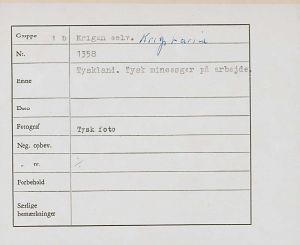 Gruppe 1 D Krigen selv. Krig, tarie
Nr. 1358
Emne Tyskland. Tysk minesøger på arbejde.
Dato
Fotograf Tysk foto
Neg. opbev.
„ nr. %
Forbehold
Særlige
bemærkninger